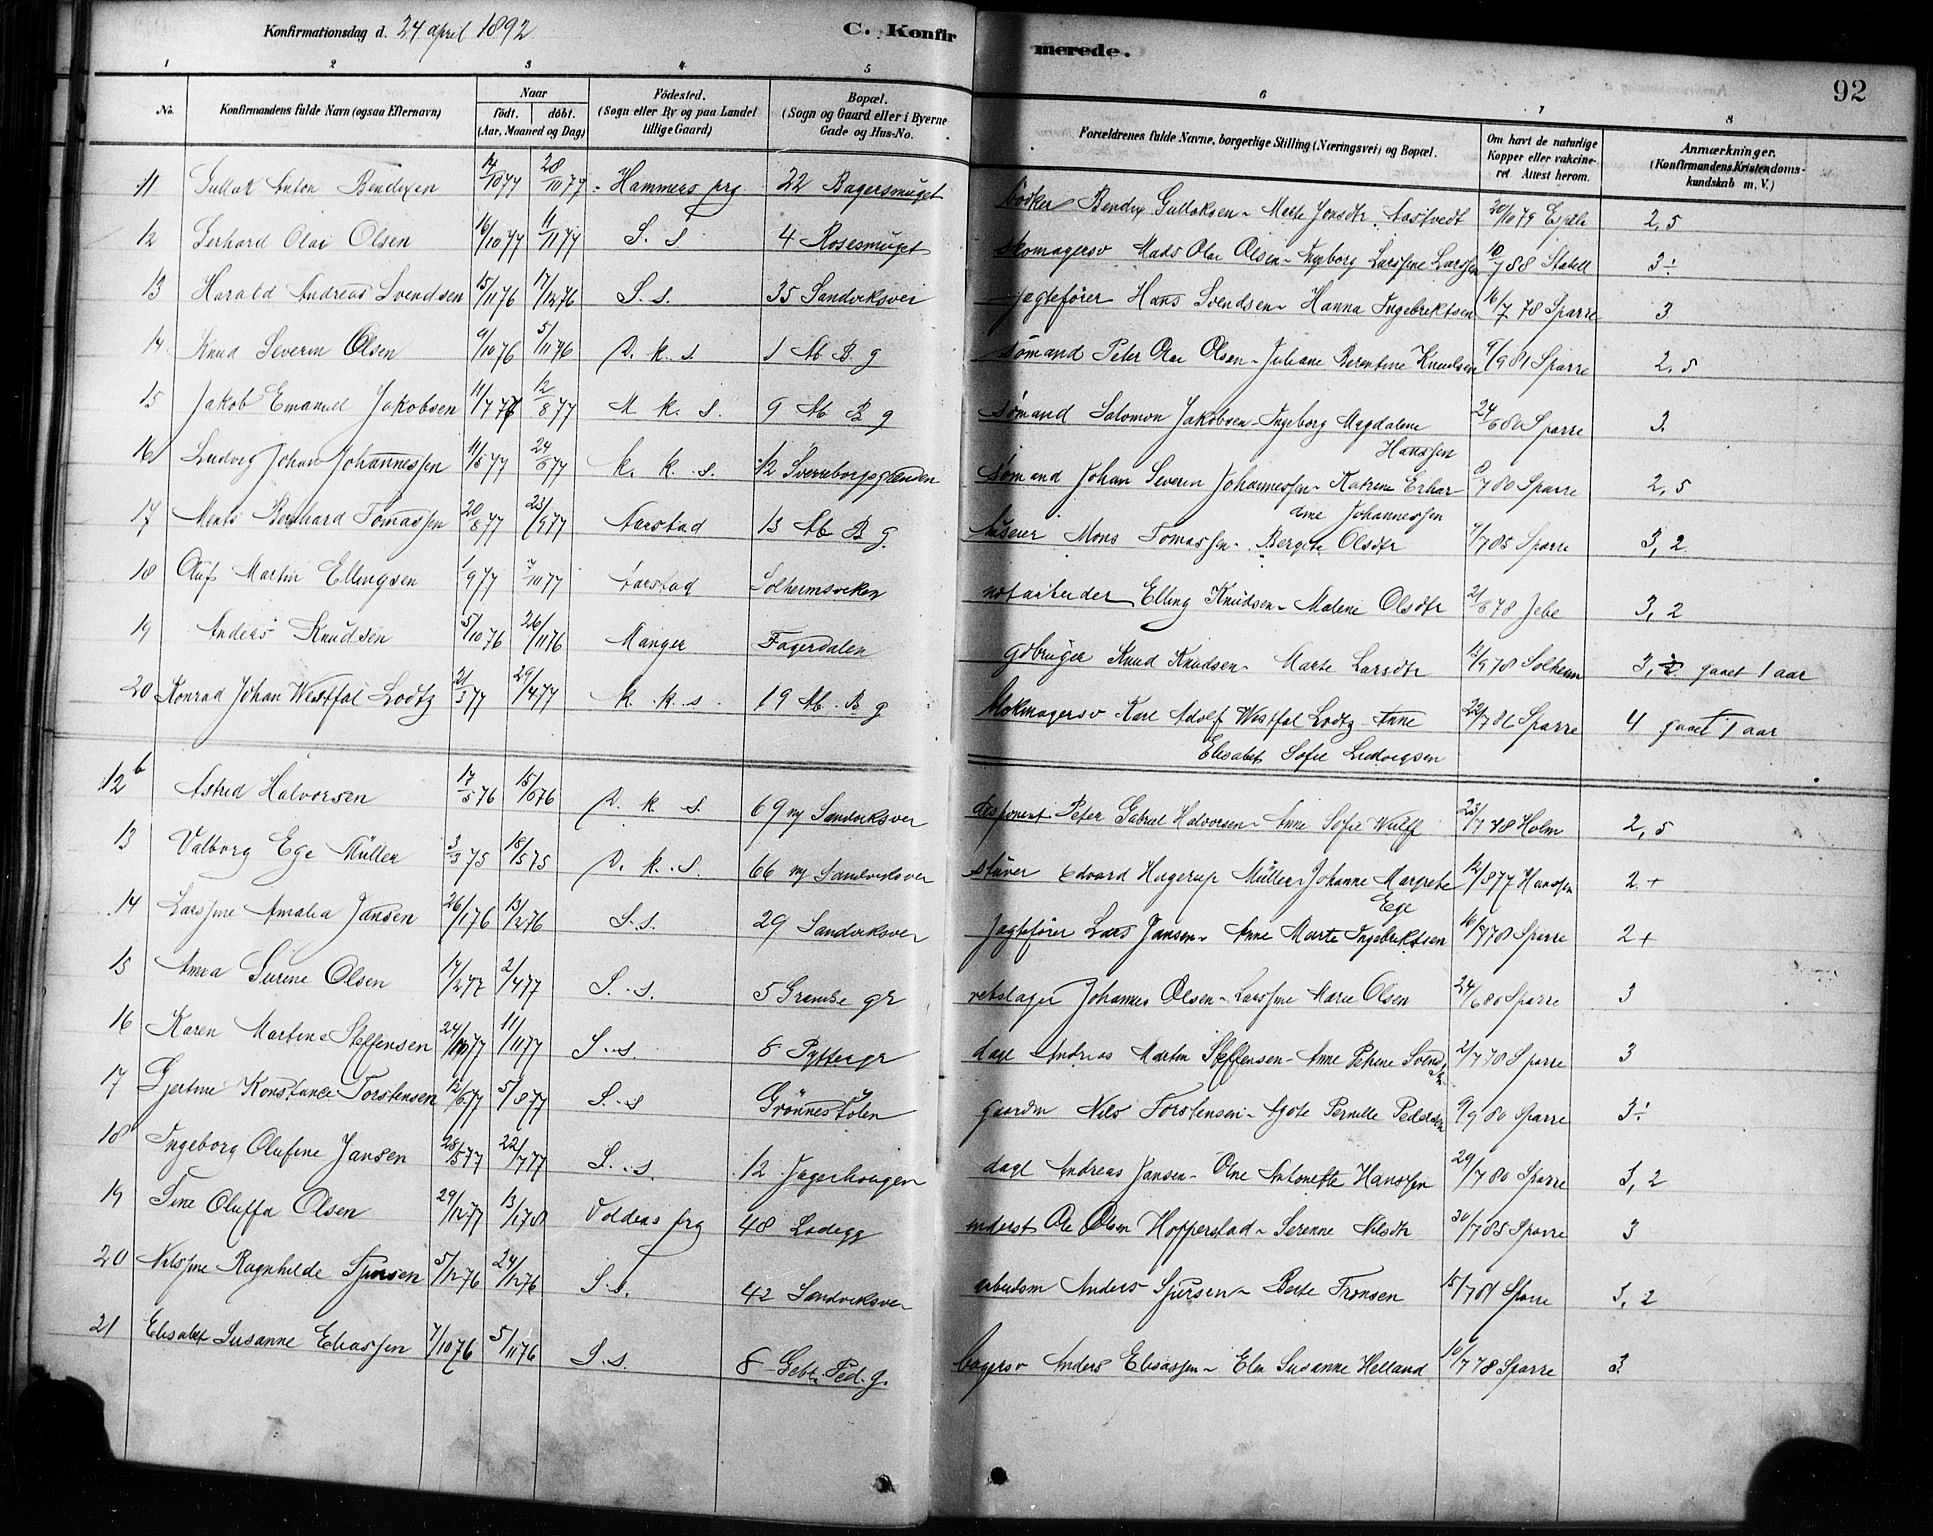 Konfirmationsdag d. 24 april 1892
C. Konfirmerede.
92
1 2 3 4 5 6 7 8
No.
Konfirmandens fulde Navn (ogsaa Efternavn)
Naar
födt. döbt.
(Aar, Maaned og Dag)
Födested.
(Sogn eller By og paa Landet
tillige Gaard)
Bopæl.
(Sogn og Gaard eller i Byerne
Gade og Hus-No.
Forældrenes fulde Navne, borgerlige Stilling (Næringsvei) og Bopæl.
Om havt de naturlige
Kopper eller vakcine-
ret. Attest herom.
Anmærkninger.
(Konfirmandens Kristendoms-
kundskab m. V.)
11 Gullak Anton Bendixen 14/10 77 28/11 77 Hammers prg 22 Bagersmuget bödker Bendix Gullaksen - Jonsdtr 20/10 79 2,5
12 Gerhard Olai Olsen 16/10 77 11/11 77 S. s 4 Rosesmuget skomagersv Mads Olai Olsen - Ingeborg Larssine Larssen 10/7 88 Stabell 3÷
13 Harald Andreas Svendsen 15/11 76 17/12 76 S. s. 35 Sandviksvei Jegtefører Hans Svendsen - Hanna Ingebrektsen 16/7 78 Sparre 3
14 Knud Severin Olsen 9/10 76 5/11 76 D. k. s 1 Ab B g sømand Peter Olai Olsen - Juliane Berentine Knudsen 9/9 81 Sparre 2,5
15 Jakob Emanuel Jakobsen 11/7 77 12/8 77 N. k. s. 9 Ab B g sømand Salomon Jakobsen - Ingeborg Magdalene
Hanssen 24/6 80 Sparre 3
16 Ludvig Johan Johannessen 24/6 77 K. k. s. 12 Sverreborgsgrenden sømand Johan Severin Johannessen - Katrine
Johannessen 80 Sparre 2,5
17 Bernhard Tomassen 20/8 77 23/9 77 Aarstad 13 Ab B g. Mons Tomassen - Bergete Olsdtr 85 Sparre 3,2
18 Oluf Martin Ellingsen 1/9 77 7/10 77 Aarstad Solheimsviken Elling Knudsen - Malene Olsdtr 78 Jebe 3,2
19 Anders Knudsen 5/10 76 26/11 76 Manger Fagerdalen gdbruger Knud Knudsen - Marte Larsdtr 12/9 78 Solheim 3, gaaet 1 aar
20 Konrad Johan Westfal Lodtz 21/3 77 29/4 77 K. k. s. 19 Ab. B g blokmagersv Karl Adolf Westfal Lodtz - Anne
Elisabet Sofie Ludvigsen 22/7 86 Sparre 4 gaaet 1 aar
12b Astrid Halvorsen 17/5 76 15/6 76 D. k. s. 69 ny Sandviksvei disponent Peter Gabriel Halvorsen - Anne Sofie Wulff 23/7 78 Holm 2,5
13 Valborg Ege Müller 3/3 75 18/5 75 D. k. s. 66 ny Sandviksvei Edvard Hagerup Müller - Johanne Margrete
Ege 12/8 77 Hanssen 2+
14 Larssine Amalia Jansen 26/1 76 13/12 76 S.s. 29 Sandviksvei Jagtefører Lars Jansen - Anne Marte Ingebriktsen 16/7 78 Sparre 2+
15 Anna Surine Olsen 17/2 77 2/4 77 S. s. 5 gr rebslager Johannes Olsen - Larssine Marie Olsen 24/6 80 Sparre 3
16 Karen Martine Steffensen 24/10 77 11/11 77 S. s. 8 Pyttergr dagl Andreas Martin Steffensen - Anne Petrine 2/7 78 Sparre 3
17 Gjertine Konstance Torstensen 12/6 77 5/8 77 S. s Grønnestølen gaardm Nils Torstensen - Agote Pernille Pedersen 9/9 80 Sparre 3÷
18 Ingeborg Olufine Jansen 28/5 77 22/7 77 S. s. 12 Jægerhaugen dagl Andreas Jansen - Oline Antonette Hanssen 29/7 80 Sparre 3,2
19 Tine Oluffa Olsen 29/12 77 13/1 78 Voldens prg 48 Ladegg Ole Olsen Hopperstad - Serenne Nilsdtr 30/7 85 Sparre 3
20 Nilsine Ragnhilde Sjursen 5/12 76 24/12 76 S. s. 42 Sandviksvei arbeidsm Anders Sjursen - Berte Tronsen 15/7 81 Sparre 3,2
21 Elisabet Susanne Eliassen 7/10 76 5/11 76 S. s. 8 Ped. g. bagersv Anders Eliassen - Elen Susanne Helland 10/7 78 Sparre 3